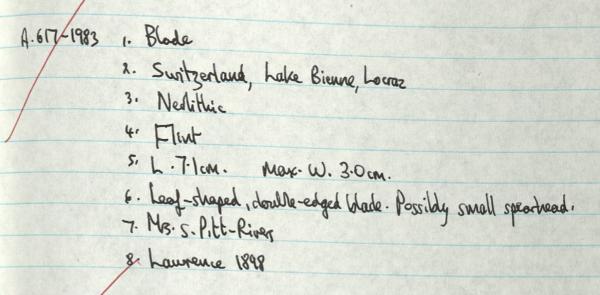 A.617-1983 1. Blade
2. Switzerland, Lake Bienne, Locraz
3. Neolithic
4. Flint
5. L. 7.1cm. Max. W. 3.0cm.
6. Leaf-shaped, double-edged blade. Possibly small spearhead.
7. Mrs. S. Pitt-Rivers
8. Lawrence 1898